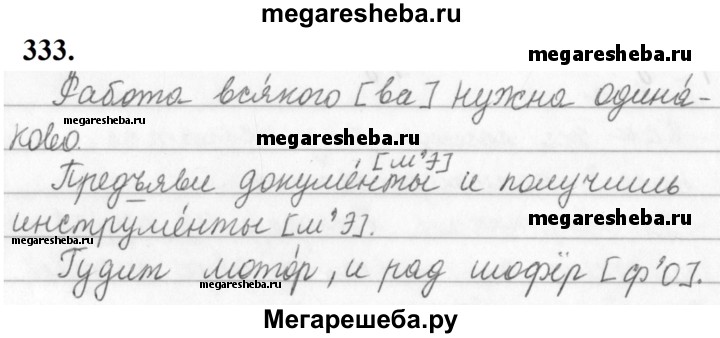 megaresheba.ru
333.
megaresheba.ru
Работа вся́кого [ва] нужна одина́-
megaresheba.ru
ково.
[м'э]
Предъяви докуме́нты и получишь
инструме́нты [м'э].
megaresheba.ru
megaresheba.ru
Гудит мото́р, и рад шофёр [ф'о].
Мегарешеба.ру